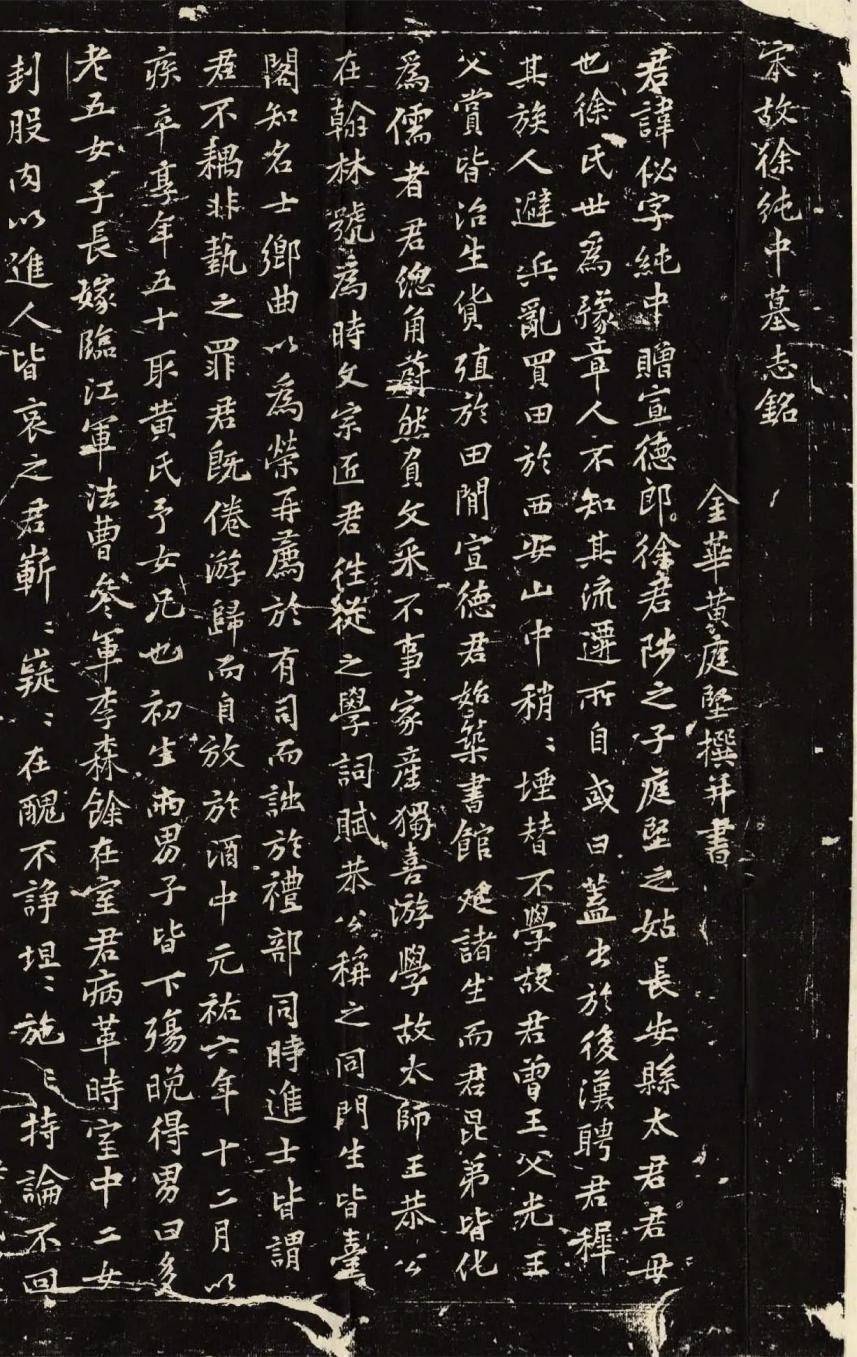 宋故徐純中墓志銘
金華黃庭堅撰并書
君諱佖字純中贈宣德郎徐君陟之子庭堅之姑長安縣太君君母
也徐氏世爲豫章人不知其流遷所自或曰蓋出於後漢聘君稺
其族人避兵亂買田於西安山中稍〻堙替不學故君曾王父光王
父賞皆治生貨殖於田閒宣德君始築書館延諸生而君昆弟皆化
爲儒者君總角蔚然負文采不事家產獨喜游學故太師王恭公
在翰林號爲時文宗匠君往從之學詞賦恭公稱之同門生皆臺
閣知名士鄉曲以爲榮再薦於有司而詘於禮部同時進士皆謂
君不耦非藝之罪君既倦游歸而自放於酒中元祐六年十二月以
疾卒享年五十取黃氏予女兄也初生兩男子皆下殤晚得男曰多
老五女子長嫁臨江軍法曹參軍李森餘在室君病革時室中二女
刲股肉以進人皆哀之君嶄〻嶷〻在醜不諍坦〻施〻持論不回